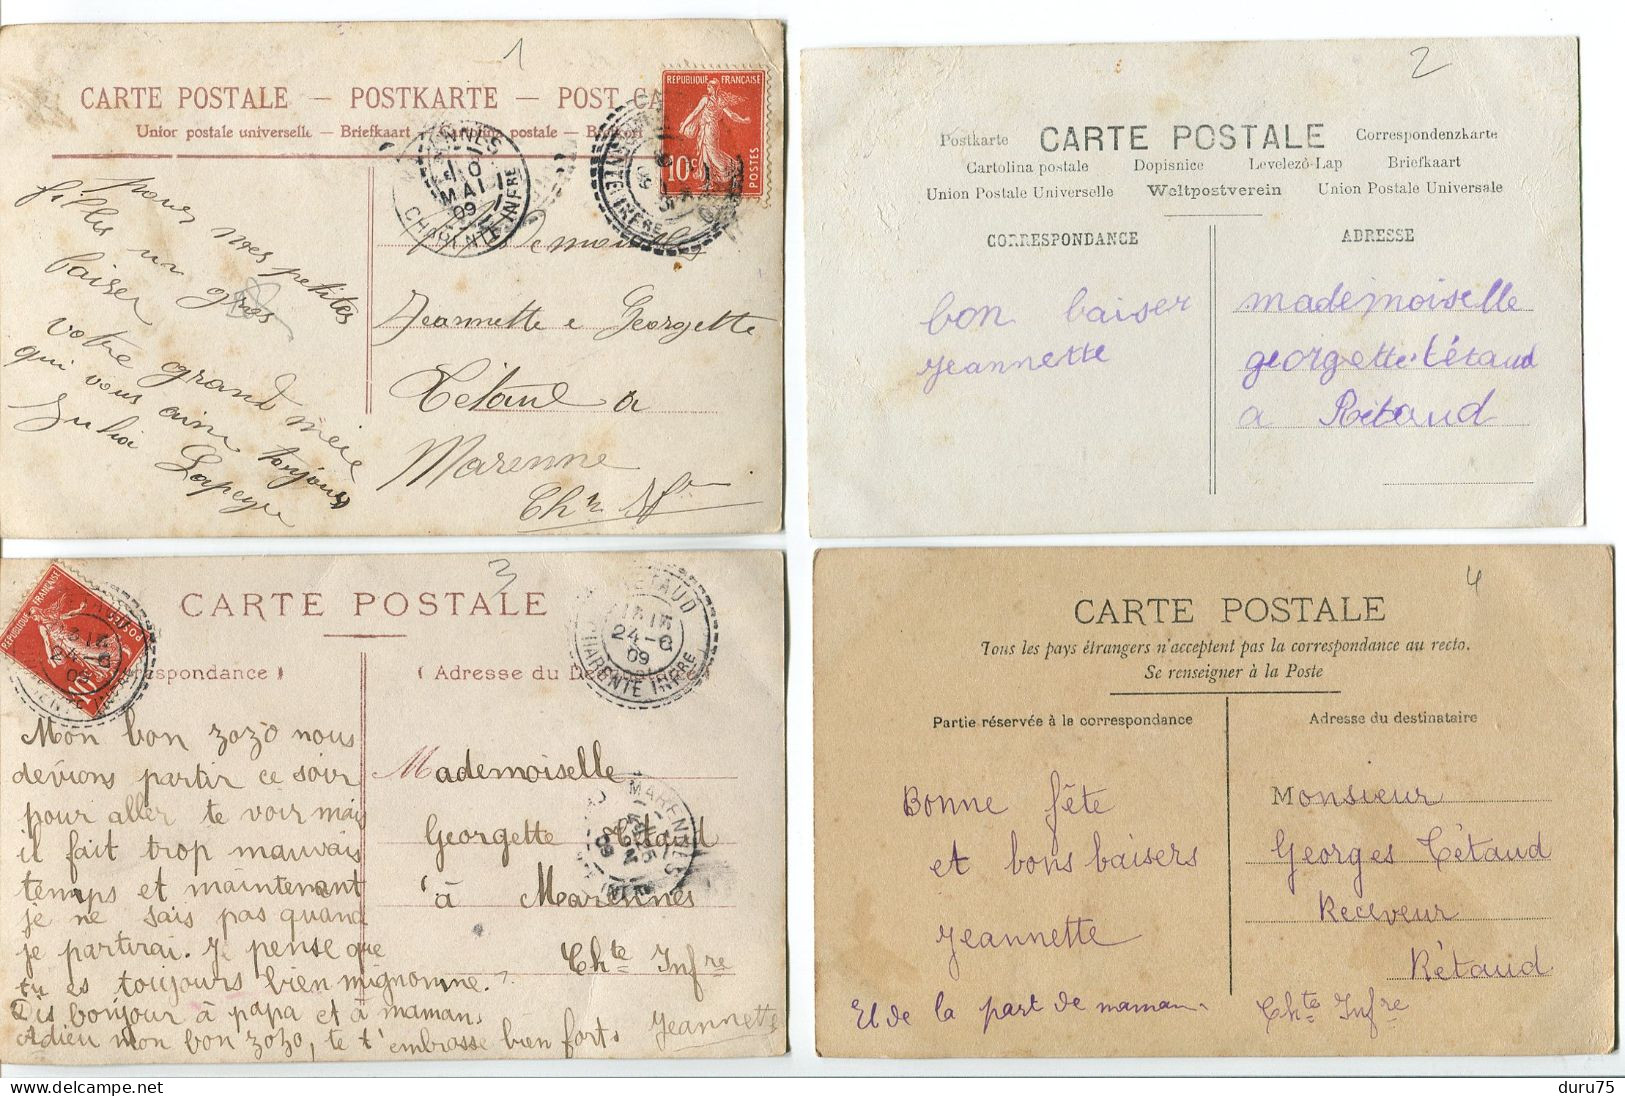 1
CARTE POSTALE — POSTKARTE — POST CA
Union postale universelle — Briefkaart — postale —
REPUBLIQUE FRANÇAISE
10c
POSTES
10
MAI
09
CHARENTE INFRE
pour mes petites
filles un gros
baiser
votre grand mère
qui vous aime toujours
Julia Lapeyre
Jeannette e Georgette
Tétaud a
Marenne
Chte Infre
2
Postkarte CARTE POSTALE Correspondenzkarte
Cartolina postale Dopisnice Levelezö-Lap Briefkaart
Union Postale Universelle Weltpostverein Union Postale Universale
CORRESPONDANCE
ADRESSE
bon baiser
jeannette
mademoiselle
georgette tétaud
a Rétaud
3
CARTE POSTALE
REPUBLIQUE FRANÇAISE
POSTES
RETAUD
24-6
09
CHARENTE INFRE
respondance )
( Adresse du De
Mon bon zozo nous
devions partir ce soir
pour aller te voir mais
il fait trop mauvais
temps et maintenant
je ne sais pas quand
je partirai. Je pense que
tu es toujours bien mignonne.
Dis bonjour à papa et à maman.
Adieu mon bon zozo, te t'embrasse bien fort. Jeannette
Mademoiselle
Georgette Tétaud
à Marennes
Chte Infre
MARENNES
4
CARTE POSTALE
Tous les pays étrangers n'acceptent pas la correspondance au recto.
Se renseigner à la Poste
Partie réservée à la correspondance
Adresse du destinataire
Bonne fête
et bons baisers
Jeannette
Et de la part de maman.
Monsieur
Georges Tétaud
Receveur
Rétaud
Chte Infre
duru75